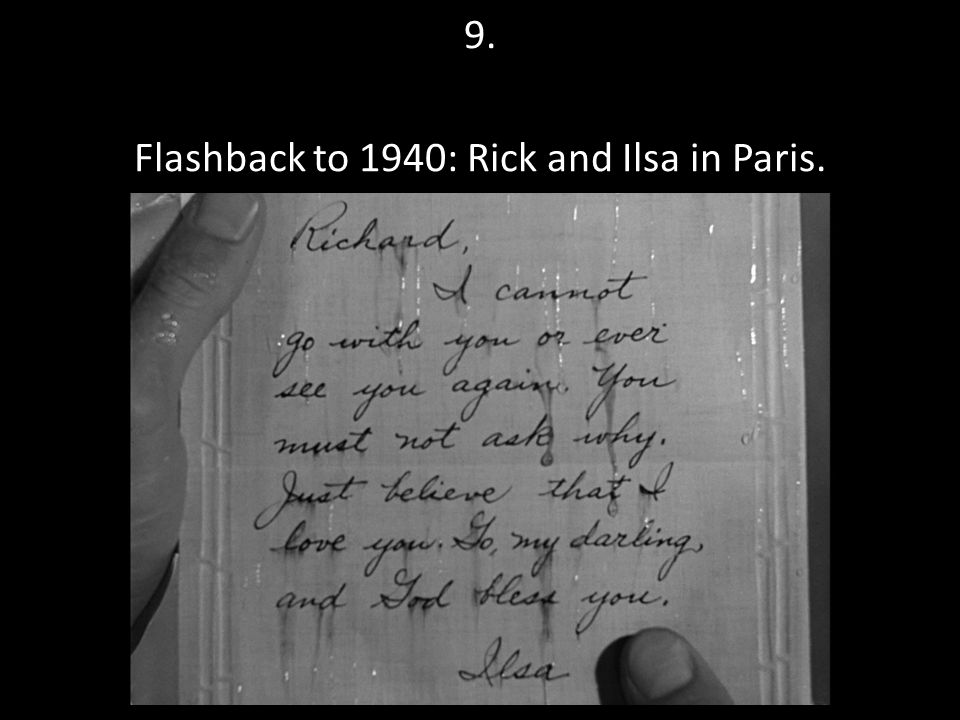 9.
Flashback to 1940: Rick and Ilsa in Paris.
Richard,
I cannot
go with you or ever
see you again. You
must not ask why.
Just believe that I
love you. Go, my darling,
and God bless you.
Ilsa